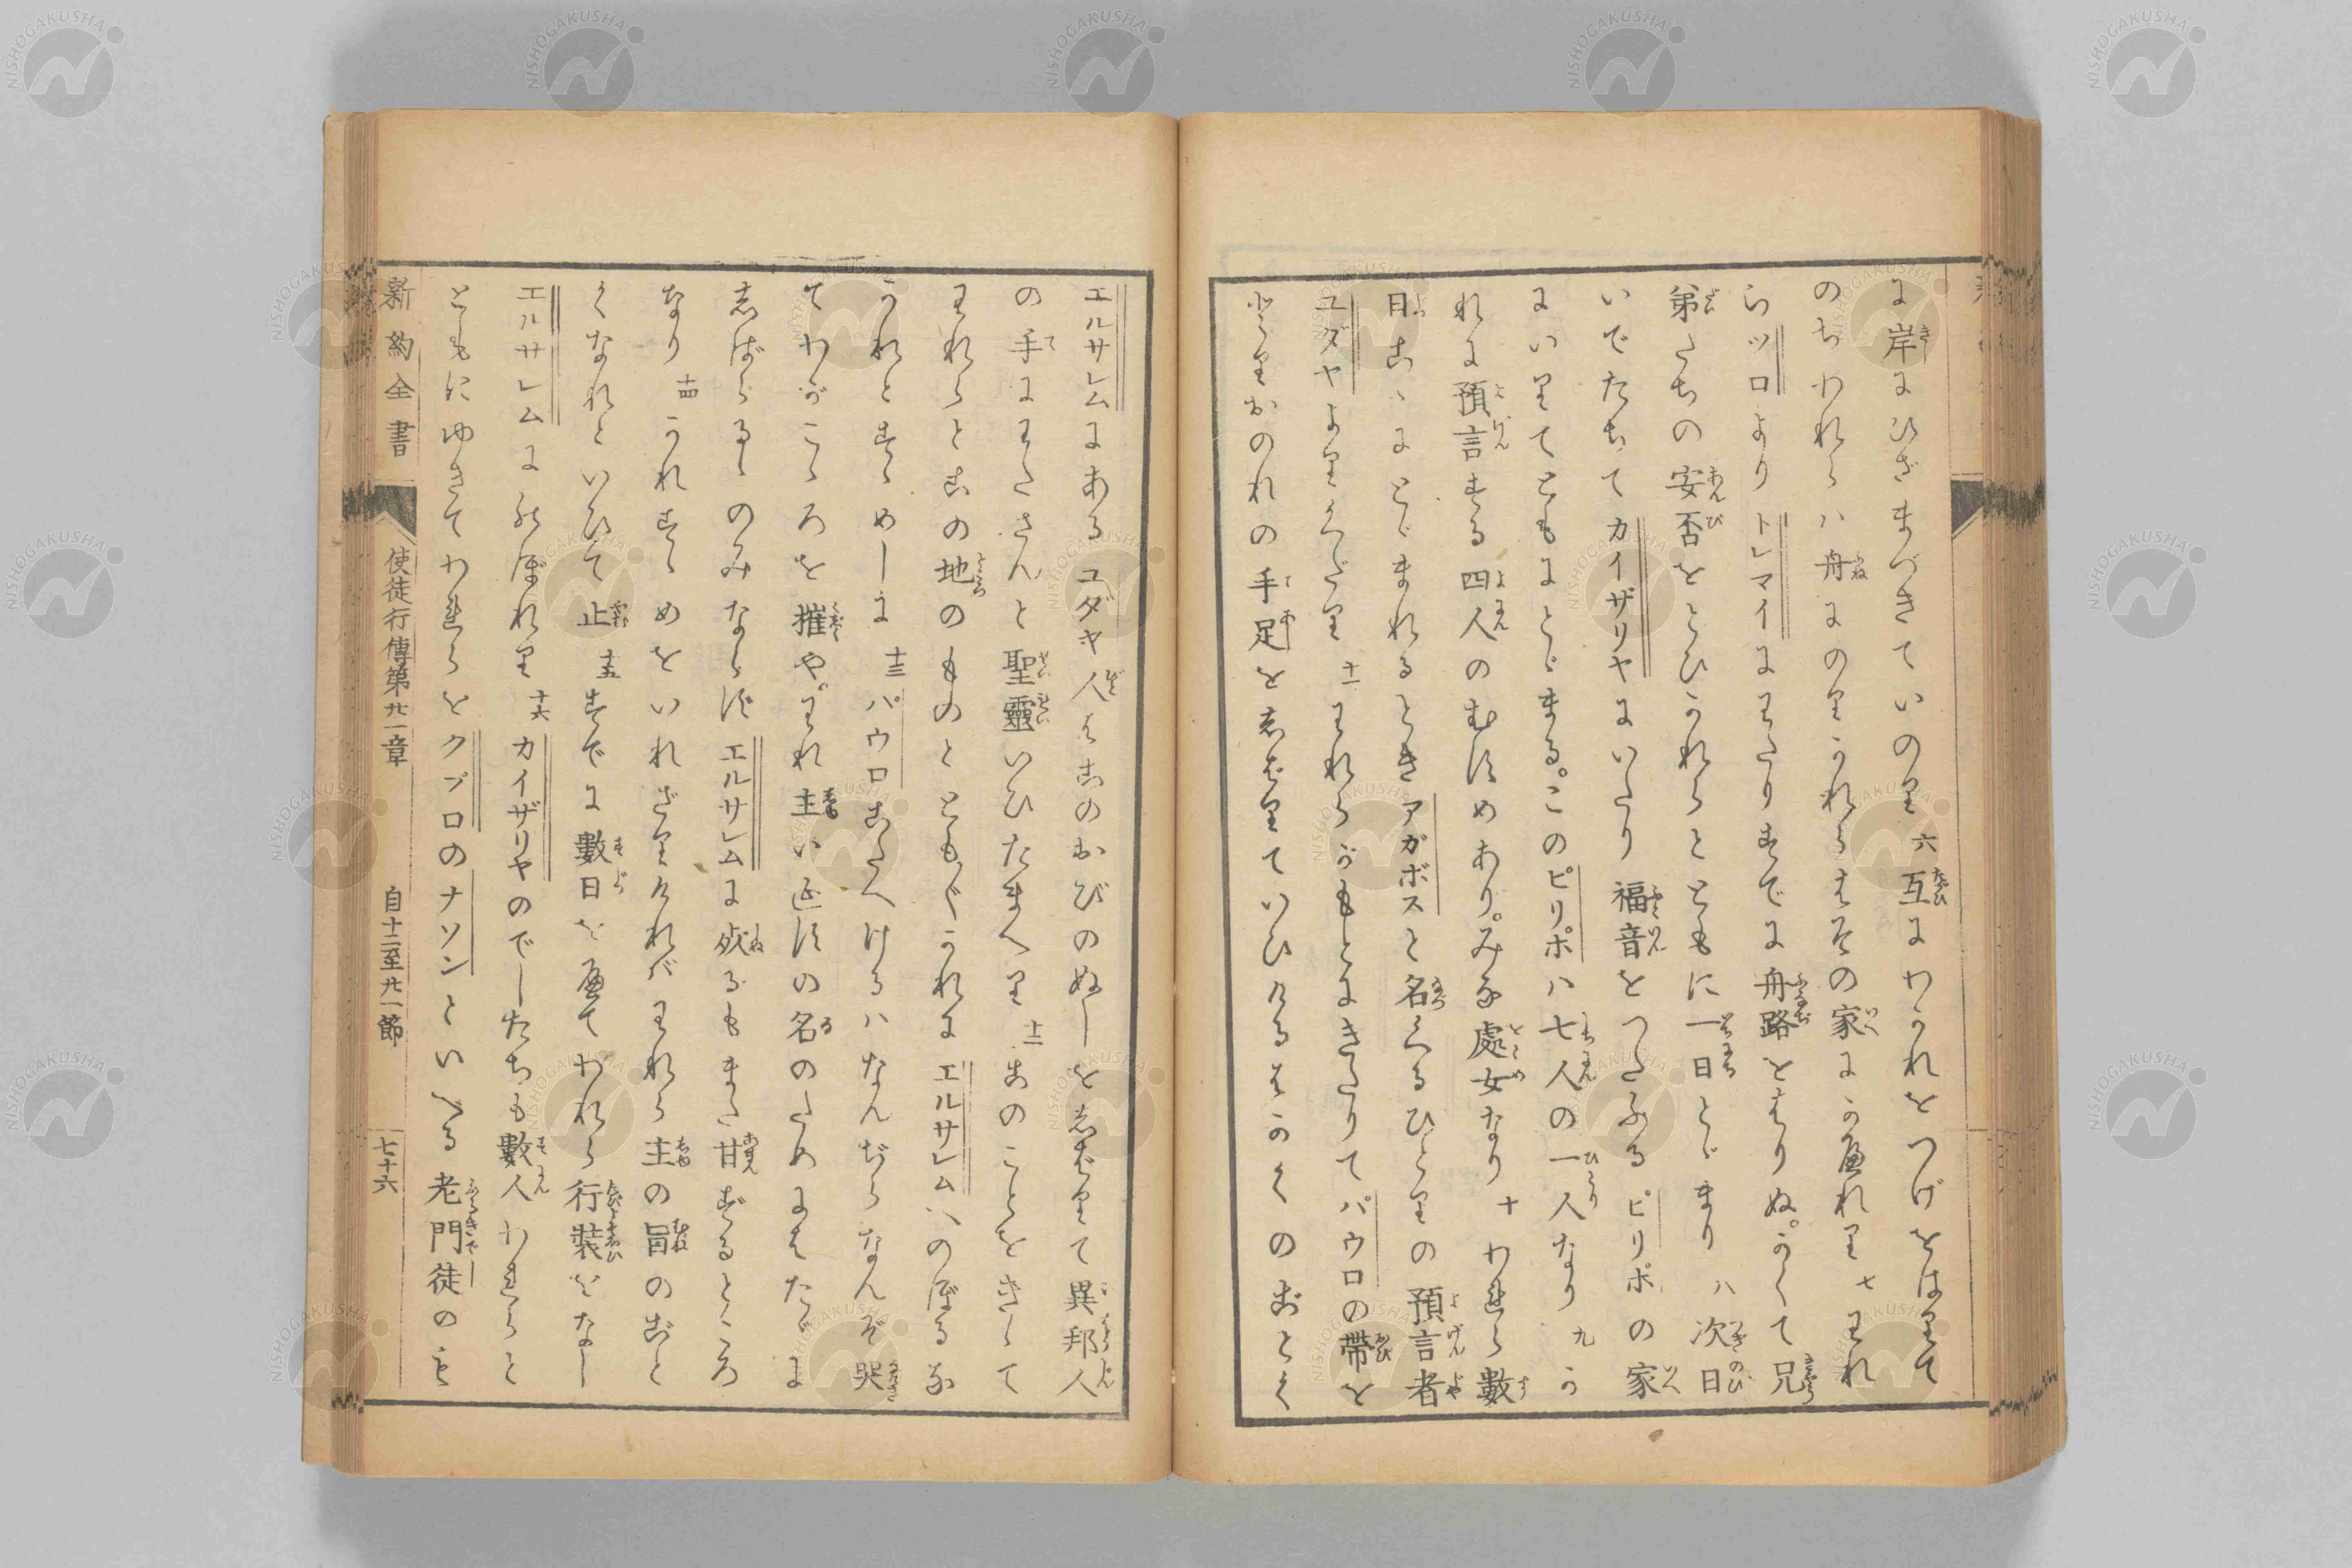 に岸にひざまづきていのり六互にわかれをつげをはりて
のちわれらハ舟にのりかれらはその家にかへれり七われ
らツロよりトレマイにわたりすでに舟路ををはりぬ。かくて兄
弟たちの安否をとひかれらとともに一日とゞまり八次日
いでたちてカイザリヤにいたり福音をつたふるピリポの家
にいりてともにとゞまる。このピリポハ七人の一人なり九か
れに預言する四人のむすめあり。みな處女なり十われら數
日こゝにとゞまれるときアガボスと名くるひとりの預言者
ユダヤよりくだり十一われらがもとにきたりてパウロの帶を
とりおのれの手足をしばりていひけるはかくのごとく
エルサレムにあるユダヤ人はこのおびのぬしをしばりて異邦人
の手にわたさんと聖靈いひたまへり十二このことをきゝて
われらとこの地のものとともにかれにエルサレムへのぼるな
かれとすゝめしに十三パウロこたへけるハなんぢらなんぞ哭
てわがこゝろを摧や。われ主イエスの名のためにはたゞに
しばらるゝのみならずエルサレムに死るもまた甘ずるところ
なり十四かれすゝめをいれざりければわれら主の旨のごと
くなれといひて止十五すでに數日を歴てわれら行裝をなし
エルサレムにのぼれり十六カイザリヤのでしたちも數人われらと
ともにゆきてわれらをクプロのナソンといへる老門徒のも
新約全書
使徒行傳第廿一章
自十二至廿一節
七十六